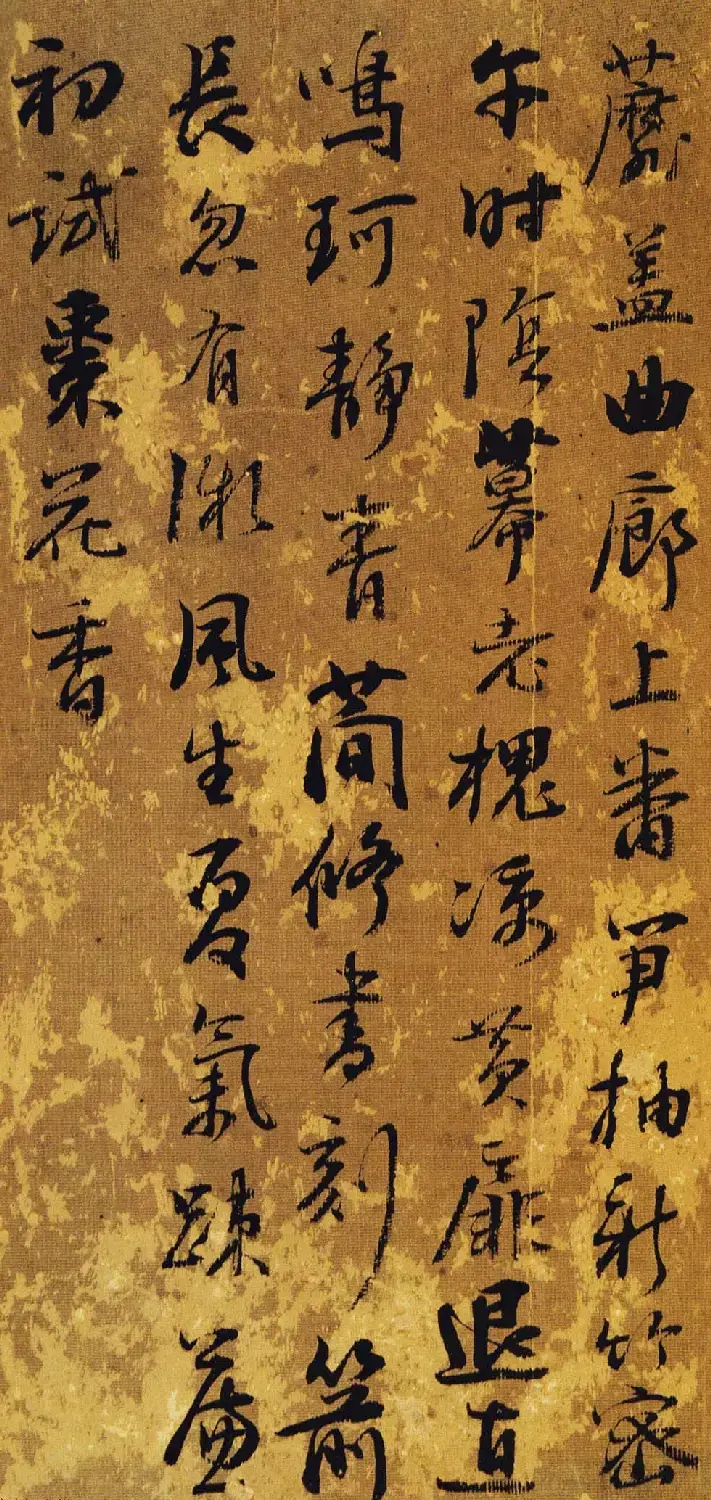 蘼盖曲廊上番笋抽新竹密
午时陰幕老槐凉黄扉退直
鳴珂静青简修書刻箭
長忽有微風生夏氣疎簾
初試棗花香